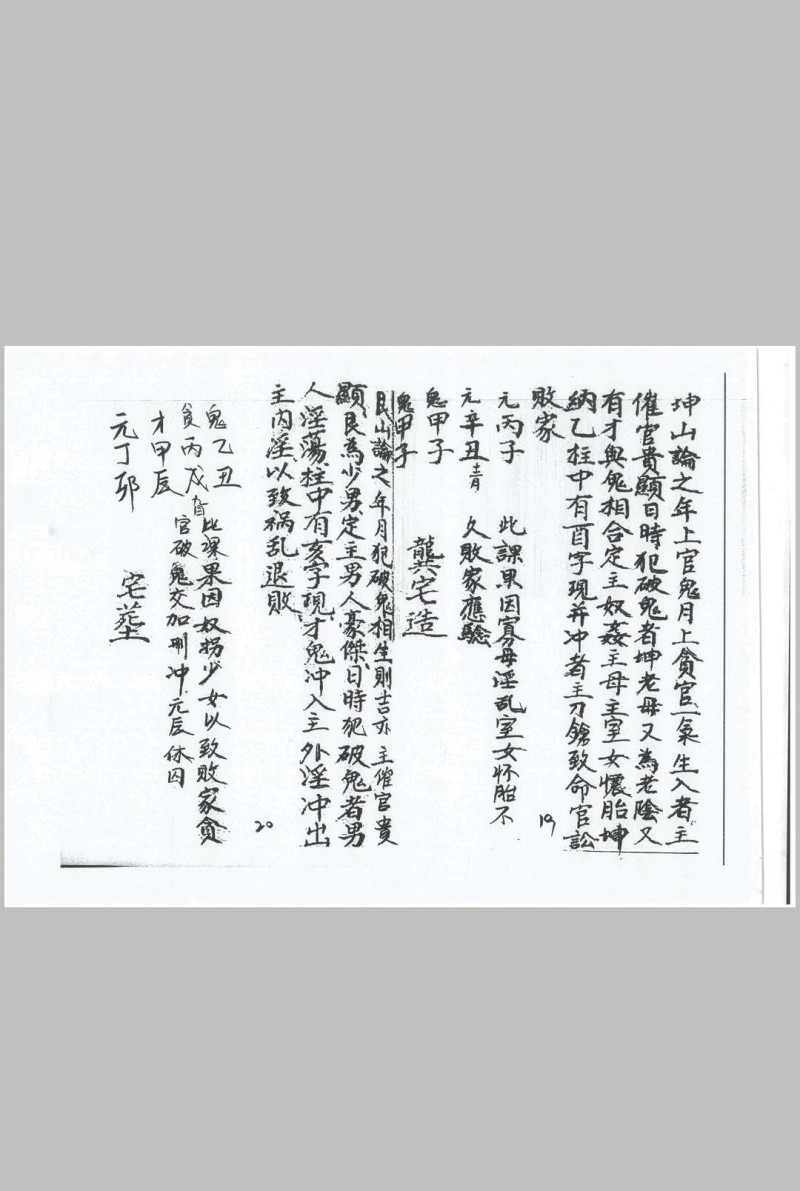 坤山論之年上官鬼月上貪官一氣生入者主
催官貴顯日時犯破鬼者坤老母又為老陰又
有才與鬼相合定主奴姦主母主室女懷胎坤
納乙柱中有酉字現并冲者主刀鎗致命官訟
敗家
元丙子 此課果因寡母淫乱室女怀胎不
元辛丑 久敗家應驗
鬼甲子
鬼甲子 龔宅造
19
艮山論之年月犯破鬼相生則吉亦主催官貴
顯艮為少男定主男人豪傑日時犯破鬼者男
人淫蕩柱中有亥字現才鬼冲入主外淫冲出
主内淫以致禍乱退敗
鬼乙丑 此課果因奴拐少女以致敗家貪
貪丙戌 官破鬼交加刑冲元辰休囚
才甲辰
元丁卯 宅墓
20